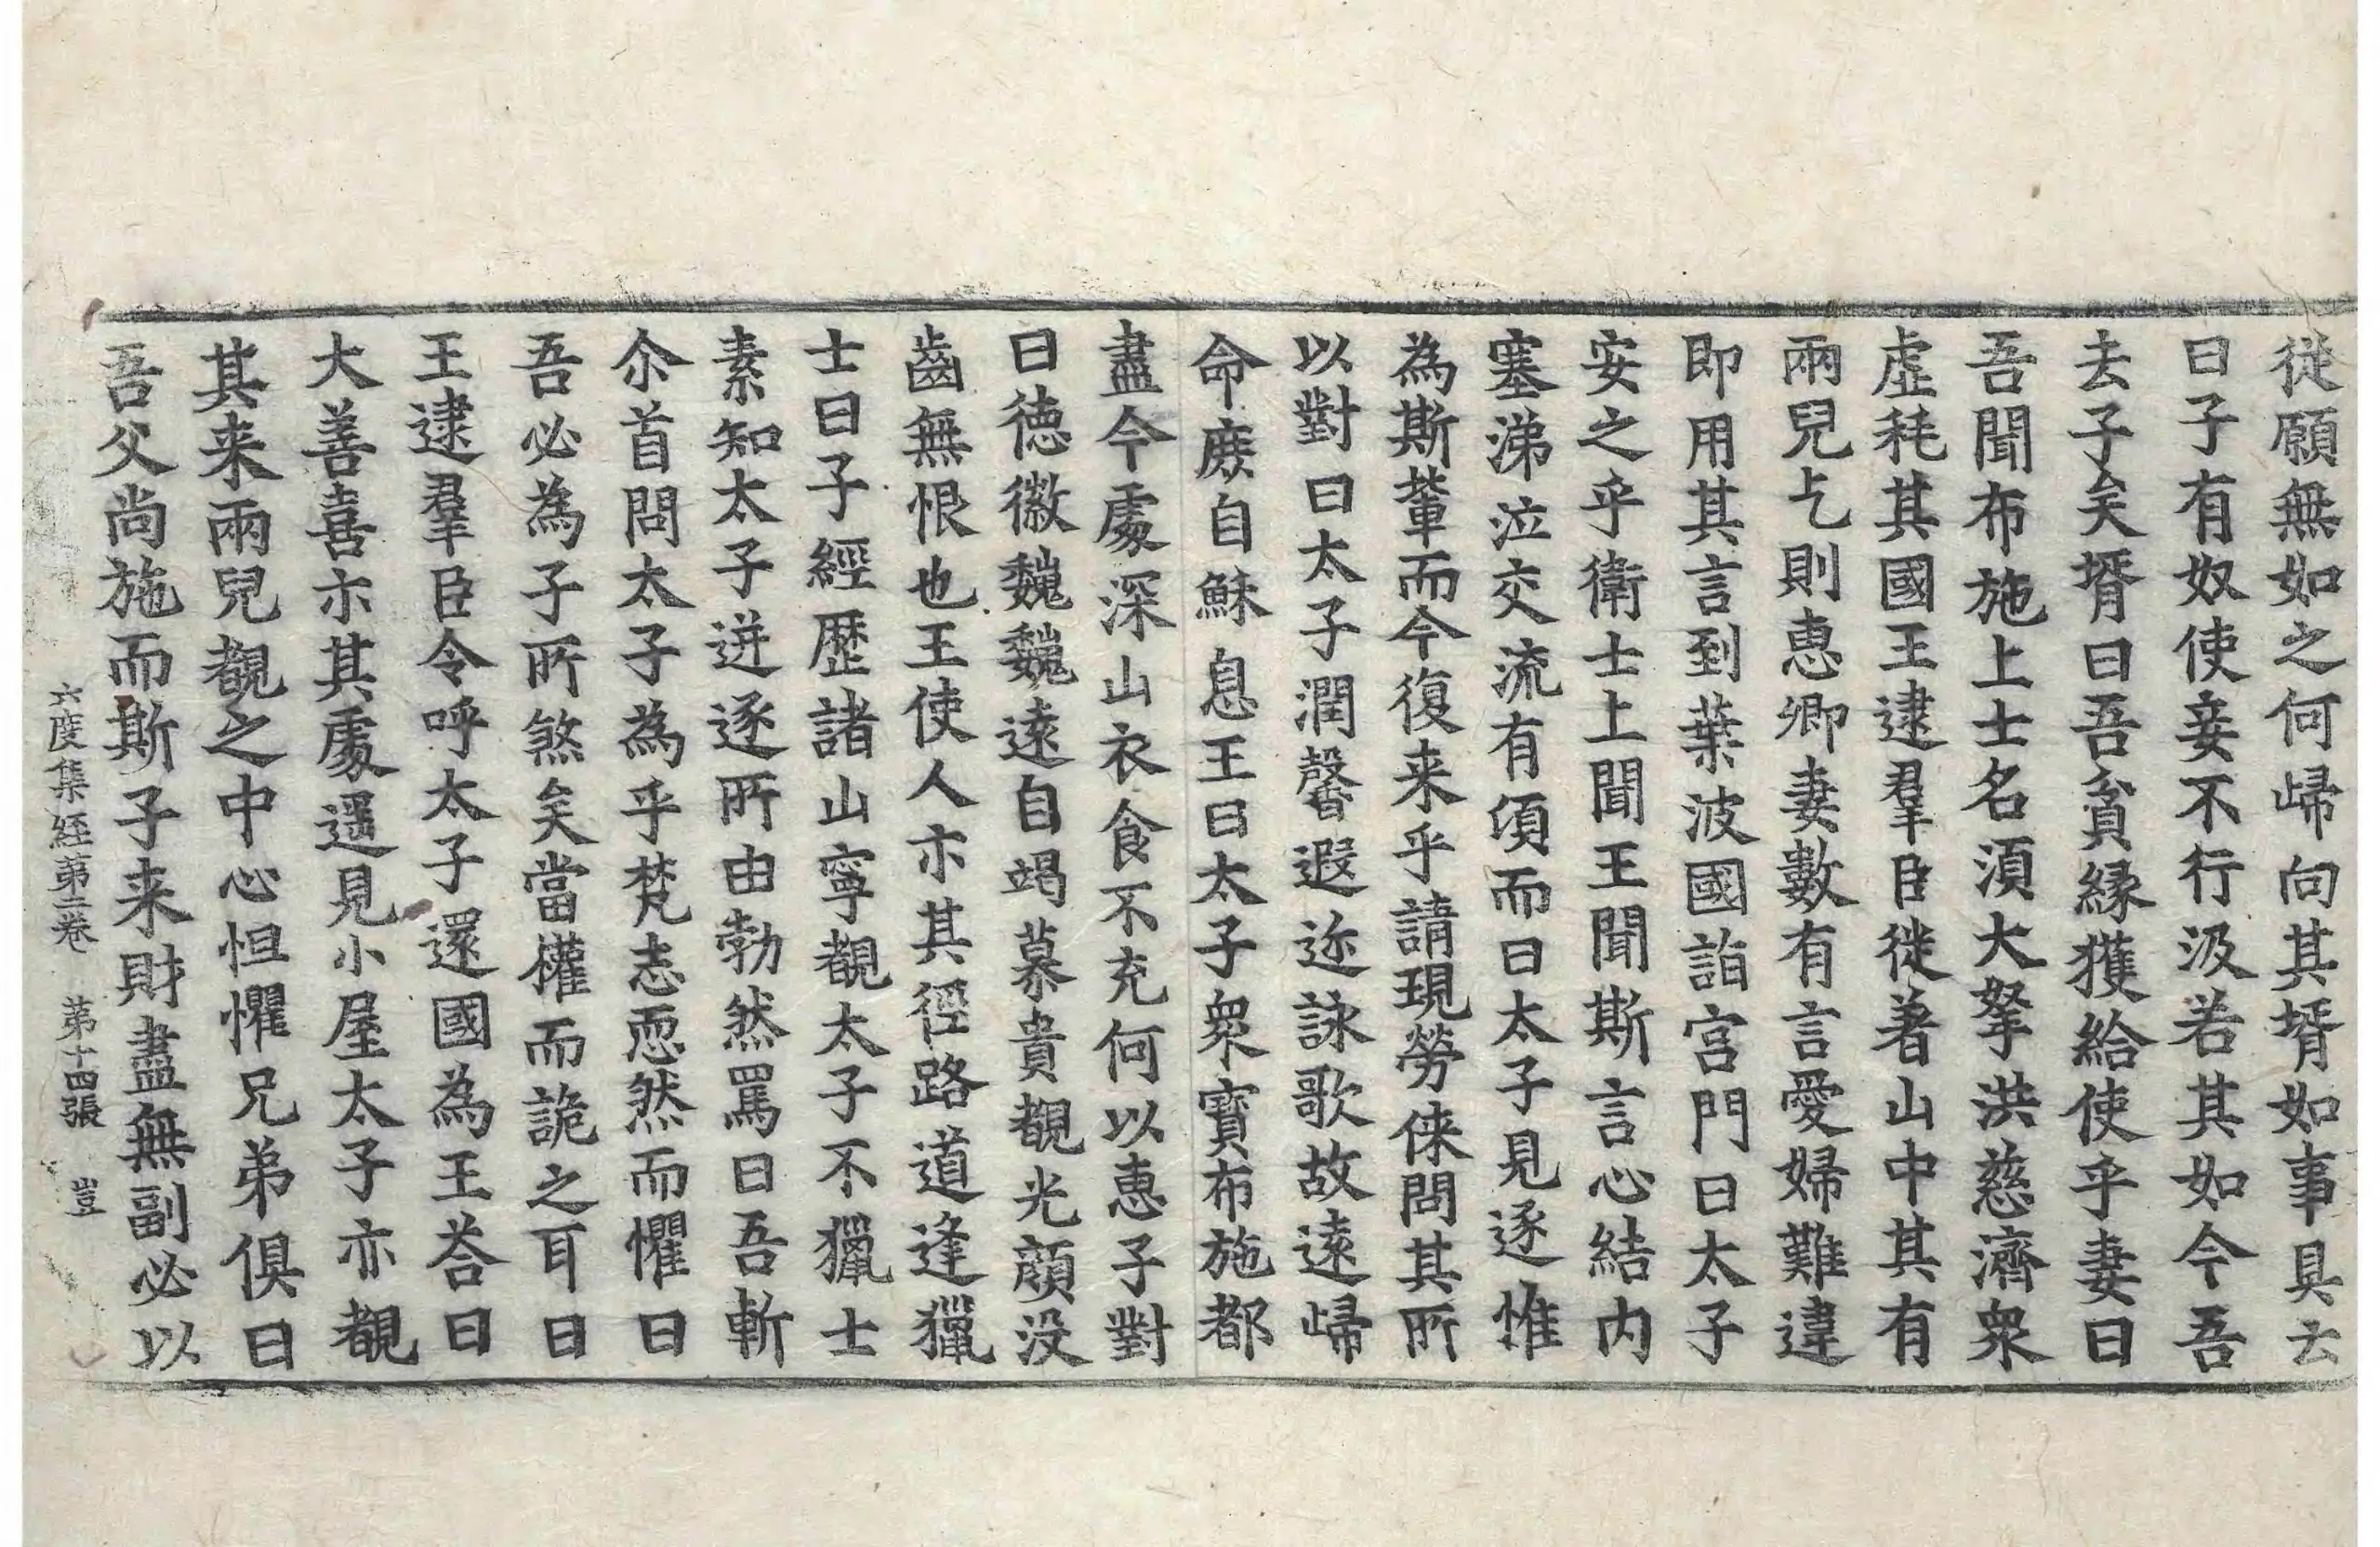 從願無如之何歸向其壻如事具云
曰子有奴使妾不行汲若其如今吾
去子矣壻曰吾貧緣獲給使乎妻曰
吾聞布施上士名須大拏洪慈濟衆
虛耗其國王逮羣臣徙著山中其有
兩兒乞則惠卿妻數有言愛婦難違
即用其言到葉波國詣宮門曰太子
安之乎衛士上聞王聞斯言心結内
塞涕泣交流有頃而曰太子見逐惟
為斯輩而今復来乎請現勞倈問其所
以對曰太子潤馨遐迩詠歌故遠歸
命庶自穌息王曰太子衆寶布施都
盡今處深山衣食不充何以惠子對
曰徳徽巍巍遠自竭慕貴覩光顔没
齒無恨也王使人示其徑路道逢獵
士曰子經歷諸山寧覩太子不獵士
素知太子迸逐所由勃然罵曰吾斬
尒首問太子為乎梵志恧然而懼曰
吾必為子所煞矣當權而詭之耳曰
王逮羣臣令呼太子還國為王荅曰
大善喜示其處遥見小屋太子亦覩
其来兩兒覩之中心怛懼兄弟俱曰
吾父尚施而斯子来財盡無副必以
六度集經第二卷　第十四張　豈